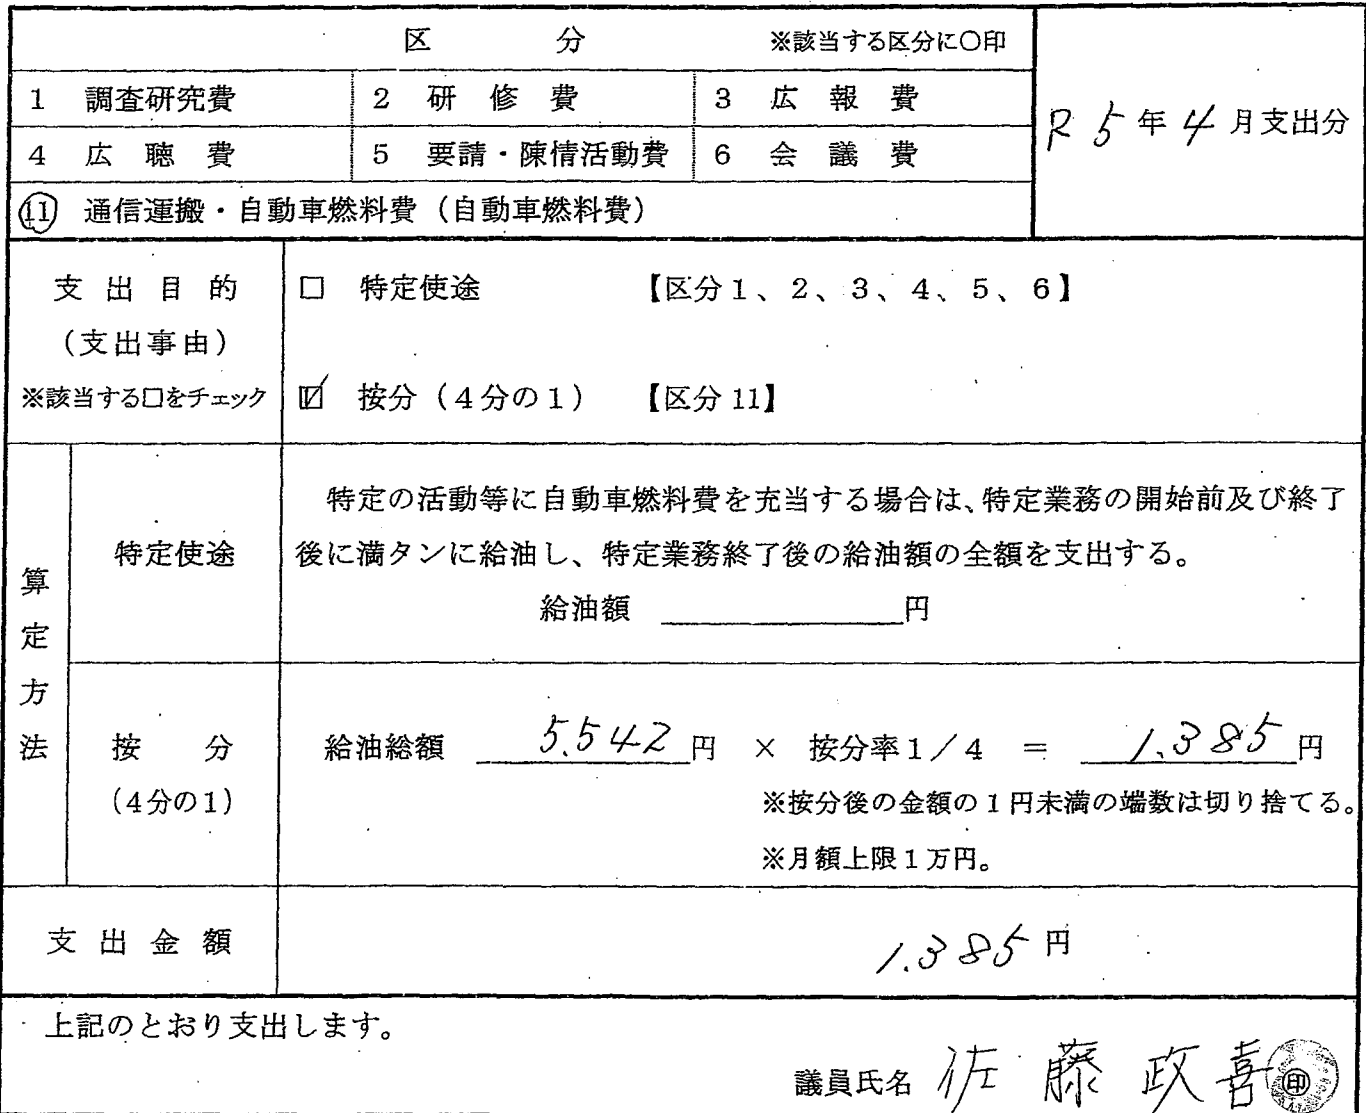 区 分 ※該当する区分に○印
1 調査研究費 2 研修費 3 広報費
R5年4月支出分
4 広聴費 5 要請・陳情活動費 6 会議費
11 通信運搬・自動車燃料費（自動車燃料費）
支出目的
（支出事由）
※該当する□をチェック
□ 特定使途 【区分1、2、3、4、5、6】
☑ 按分（4分の1） 【区分11】
算定方法
特定使途
特定の活動等に自動車燃料費を充当する場合は、特定業務の開始前及び終了
後に満タンに給油し、特定業務終了後の給油額の全額を支出する。
給油額 円
按分
（4分の1）
給油総額 5.542円 × 按分率1／4 ＝ 1.385円
※按分後の金額の1円未満の端数は切り捨てる。
※月額上限1万円。
支出金額 1.385円
上記のとおり支出します。
議員氏名 佐藤政喜 ㊞